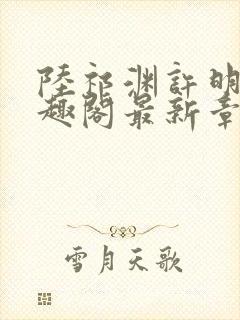 陸祁淵許明
趣閣最新章
雪月天歌